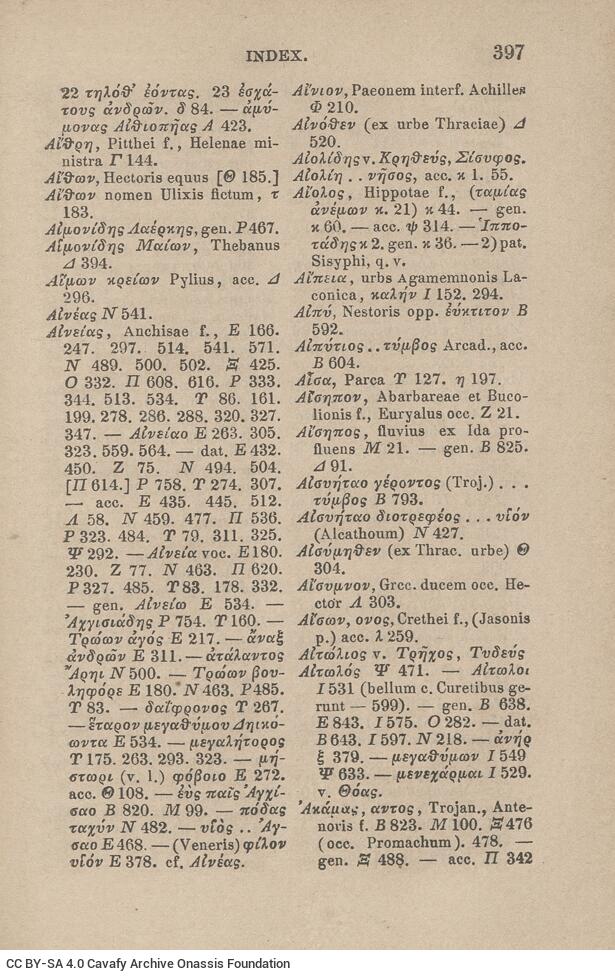 INDEX. 397
22 τηλόθ' ἐόντας. 23 ἐσχά-
τους ἀνδρῶν. δ 84. — ἀμύ-
μονας Αἰθιοπῆας Α 423.
Αἴθρη, Pitthei f., Helenae mi-
nistra Γ 144.
Αἴθων, Hectoris equus [Θ 185.]
Αἴθων nomen Ulixis fictum, τ
183.
Αἱμονίδης Λαέρκης, gen. Ρ 467.
Αἱμονίδης Μαίων, Thebanus
Δ 394.
Αἵμων κρείων Pylius, acc. Δ
296.
Αἰνέας Ν 541.
Αἰνείας, Anchisae f., Ε 166.
247. 297. 514. 541. 571.
Ν 489. 500. 502. Ξ 425.
Ο 332. Π 608. 616. Ρ 333.
344. 513. 534. Τ 86. 161.
199. 278. 286. 288. 320. 327.
347. — Αἰνείαο Ε 263. 305.
323. 559. 564. — dat. Ε 432.
450. Ζ 75. Ν 494. 504.
[Π 614.] Ρ 758. Τ 274. 307.
— acc. Ε 435. 445. 512.
Λ 58. Ν 459. 477. Π 536.
Ρ 323. 484. Τ 79. 311. 325.
Ψ 292. — Αἰνεία voc. Ε 180.
230. Ζ 77. Ν 463. Π 620.
Ρ 327. 485. Τ 83. 178. 332.
— gen. Αἰνείω Ε 534. —
Ἀχγισιάδης Ρ 754. Τ 160. —
Τρώων ἀγός Ε 217. — ἄναξ
ἀνδρῶν Ε 311. — ἀτάλαντος
Ἄρηι Ν 500. — Τρώων βου-
ληφόρε Ε 180. Ν 463. Ρ 485.
Τ 83. — δαΐφρονος Τ 267.
— ἕταρον μεγαθύμου Δηικό-
ωντα Ε 534. — μεγαλήτορος
Τ 175. 263. 293. 323. — μή-
στωρι (v. l.) φόβοιο Ε 272.
acc. Θ 108. — ἐὺς παῖς Ἀγχί-
σαο Β 820. Μ 99. — πόδας
ταχύν Ν 482. — υἱὸς .. Ἀγ-
σαο Ε 468. — (Veneris) φίλον
υἱόν Ε 378. cf. Αἰνέας.
Αἴνιον, Paeonem interf. Achilles
Φ 210.
Αἰνόθεν (ex urbe Thraciae) Δ
520.
Αἰολίδης v. Κρηθεύς, Σίσυφος.
Αἰολίη .. νῆσος, acc. κ 1. 55.
Αἴολος, Hippotae f., (ταμίας
ἀνέμων κ. 21) κ 44. — gen.
κ 60. — acc. ψ 314. — Ἱππο-
τάδης κ 2. gen. κ 36. — 2) pat.
Sisyphi, q. v.
Αἴπεια, urbs Agamemnonis La-
conica, καλήν Ι 152. 294.
Αἰπύ, Nestoris opp. ἐύκτιτον Β
592.
Αἰπύτιος .. τύμβος Arcad., acc.
Β 604.
Αἶσα, Parca Τ 127. η 197.
Αἴσηπον, Abarbareae et Buco-
lionis f., Euryalus occ. Ζ 21.
Αἴσηπος, fluvius ex Ida pro-
fluens Μ 21. — gen. Β 825.
Δ 91.
Αἰσυήταο γέροντος (Troj.) . . .
τύμβος Β 793.
Αἰσυήταο διοτρεφέος . . . υἱόν
(Alcathoum) Ν 427.
Αἰσύμηθεν (ex Thrac. urbe) Θ
304.
Αἴσυμνον, Grec. ducem occ. He-
ctor Λ 303.
Αἴσων, ονος, Crethei f., (Jasonis
p.) acc. λ 259.
Αἰτώλιος v. Τρῆχος, Τυδεύς
Αἰτωλός Ψ 471. — Αἰτωλοι
Ι 531 (bellum c. Curetibus ge-
runt — 599). — gen. Β 638.
Ε 843. Ι 575. Ο 282. — dat.
Β 643. Ι 597. Ν 218. — ἀνήρ
ξ 379. — μεγαθύμων Ι 549
Ψ 633. — μενεχάρμαι Ι 529.
v. Θόας.
Ἀκάμας, αντος, Trojan., Ante-
noris f. Β 823. Μ 100. Ξ 476
(occ. Promachum). 478. —
gen. Ξ 488. — acc. Π 342
CC BY-SA 4.0 Cavafy Archive Onassis Foundation